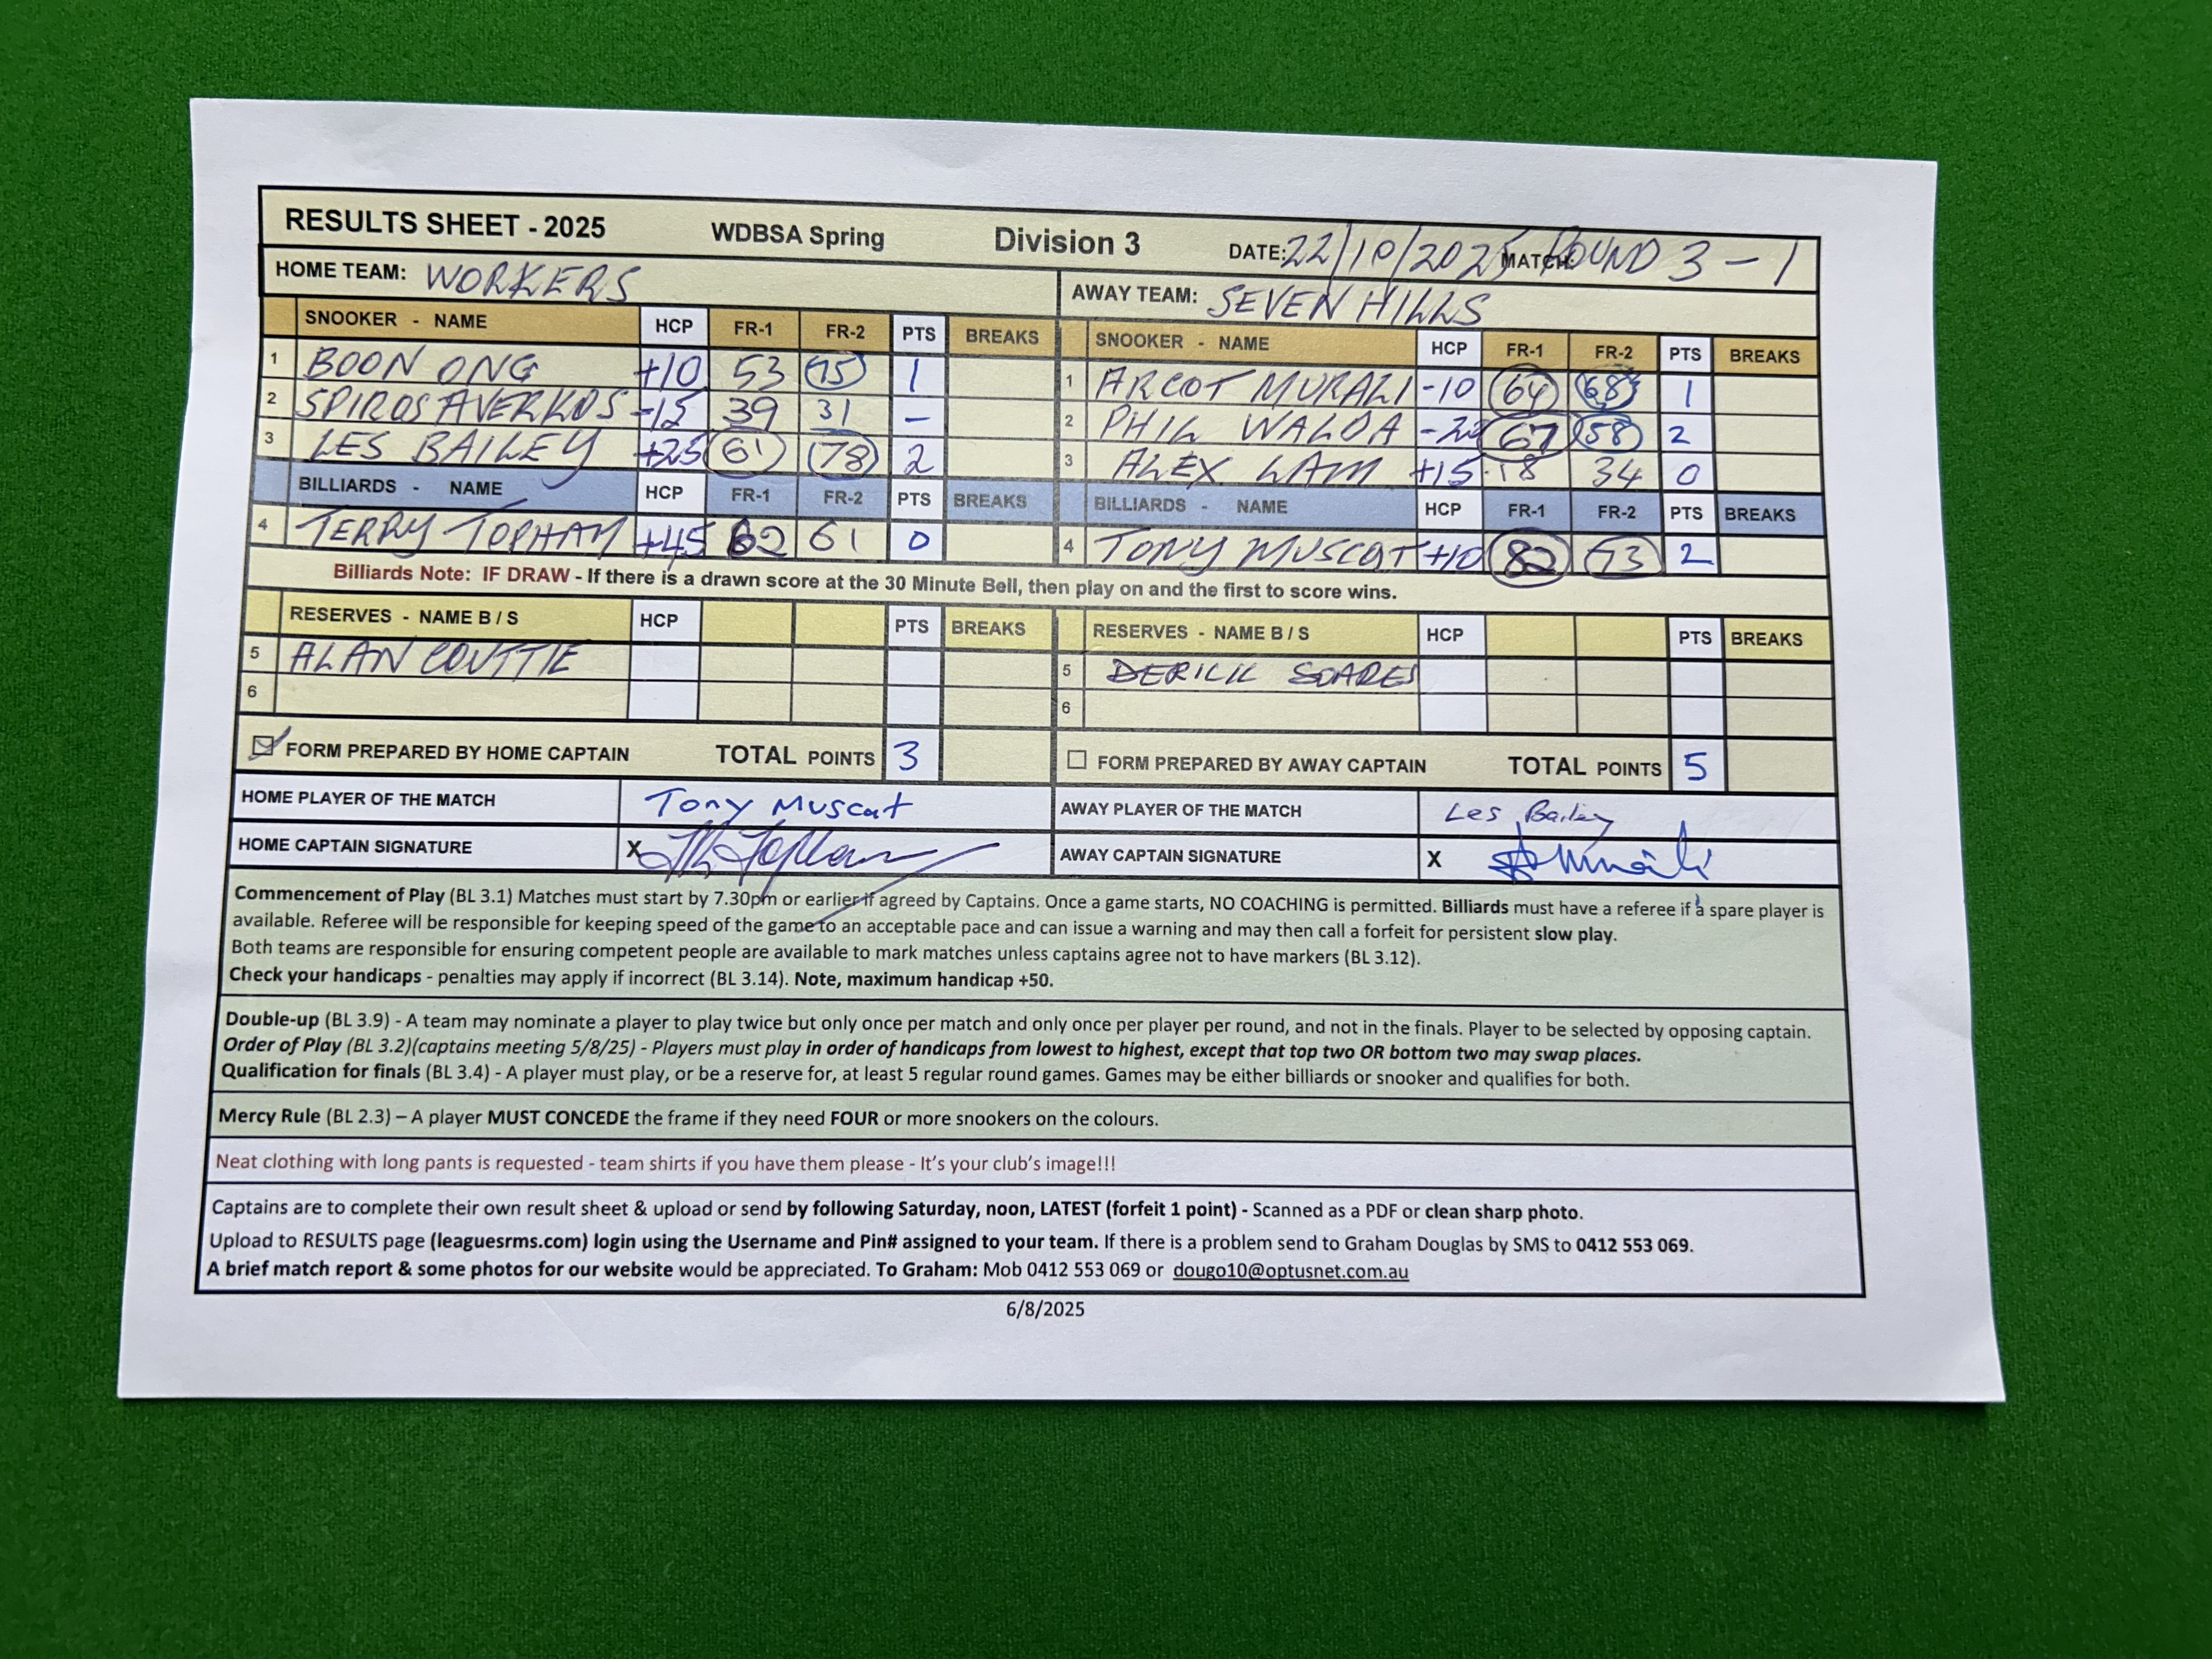 RESULTS SHEET - 2025 WDBSA Spring Division 3 DATE: 22/10/2025 MATCH: ROUND 3-1
HOME TEAM: WORKERS AWAY TEAM: SEVEN HILLS
SNOOKER - NAME HCP FR-1 FR-2 PTS BREAKS SNOOKER - NAME HCP FR-1 FR-2 PTS BREAKS
1 BOON ONG +10 53 75 1 1 ARCOT MURALI -10 64 68 1
2 SPIROS AVERKOS -15 39 31 - 2 PHIL WALDA 67 58 2
3 LES BAILEY +25 61 78 2 3 ALEX LAM +15 18 34 0
BILLIARDS - NAME HCP FR-1 FR-2 PTS BREAKS BILLIARDS - NAME HCP FR-1 FR-2 PTS BREAKS
4 TERRY TOPHAM +45 62 61 0 4 TONY MUSCAT +10 82 73 2
Billiards Note: IF DRAW - If there is a drawn score at the 30 Minute Bell, then play on and the first to score wins.
RESERVES - NAME B / S HCP PTS BREAKS RESERVES - NAME B / S HCP PTS BREAKS
5 ALAN COUTTIE 5 DERICK SOARES
6 6
FORM PREPARED BY HOME CAPTAIN TOTAL POINTS 3 FORM PREPARED BY AWAY CAPTAIN TOTAL POINTS 5
HOME PLAYER OF THE MATCH Tony Muscat AWAY PLAYER OF THE MATCH Les Bailey
HOME CAPTAIN SIGNATURE X AWAY CAPTAIN SIGNATURE X
Commencement of Play (BL 3.1) Matches must start by 7.30pm or earlier if agreed by Captains. Once a game starts, NO COACHING is permitted. Billiards must have a referee if a spare player is
available. Referee will be responsible for keeping speed of the game to an acceptable pace and can issue a warning and may then call a forfeit for persistent slow play.
Both teams are responsible for ensuring competent people are available to mark matches unless captains agree not to have markers (BL 3.12).
Check your handicaps - penalties may apply if incorrect (BL 3.14). Note, maximum handicap +50.
Double-up (BL 3.9) - A team may nominate a player to play twice but only once per match and only once per player per round, and not in the finals. Player to be selected by opposing captain.
Order of Play (BL 3.2)(captains meeting 5/8/25) - Players must play in order of handicaps from lowest to highest, except that top two OR bottom two may swap places.
Qualification for finals (BL 3.4) - A player must play, or be a reserve for, at least 5 regular round games. Games may be either billiards or snooker and qualifies for both.
Mercy Rule (BL 2.3) – A player MUST CONCEDE the frame if they need FOUR or more snookers on the colours.
Neat clothing with long pants is requested - team shirts if you have them please - It's your club's image!!!
Captains are to complete their own result sheet & upload or send by following Saturday, noon, LATEST (forfeit 1 point) - Scanned as a PDF or clean sharp photo.
Upload to RESULTS page (leaguesrms.com) login using the Username and Pin# assigned to your team. If there is a problem send to Graham Douglas by SMS to 0412 553 069.
A brief match report & some photos for our website would be appreciated. To Graham: Mob 0412 553 069 or dougo10@optusnet.com.au
6/8/2025